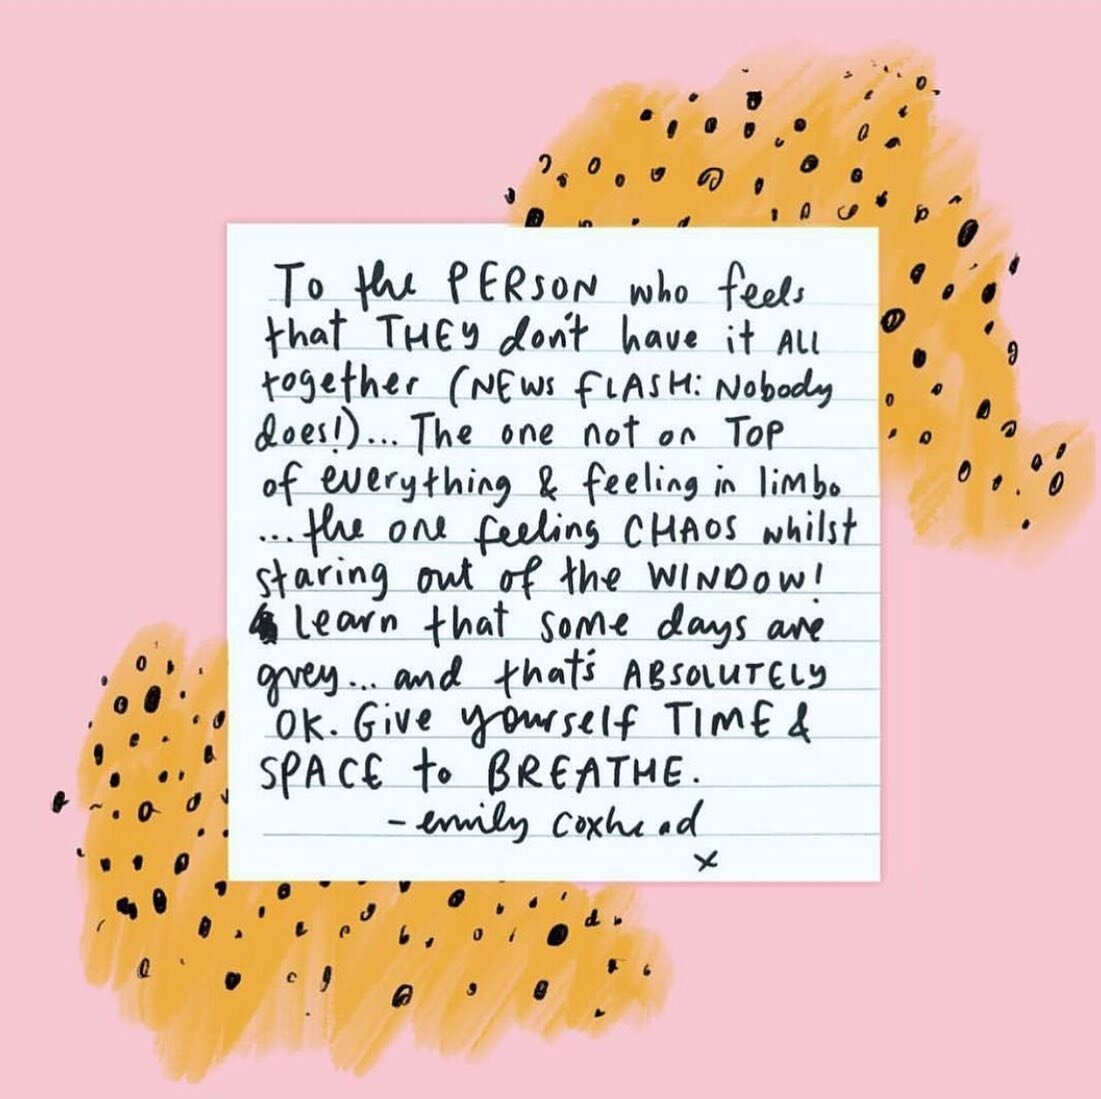 To the PERSON who feels
that THEY don't have it ALL
together (NEWS FLASH: Nobody
does!)... The one not on TOP
of everything & feeling in limbo
...the one feeling CHAOS whilst
staring out of the WINDOW!
Learn that some days are
grey... and that's ABSOLUTELY
OK. Give yourself TIME &
SPACE to BREATHE.
- emily coxhead
x